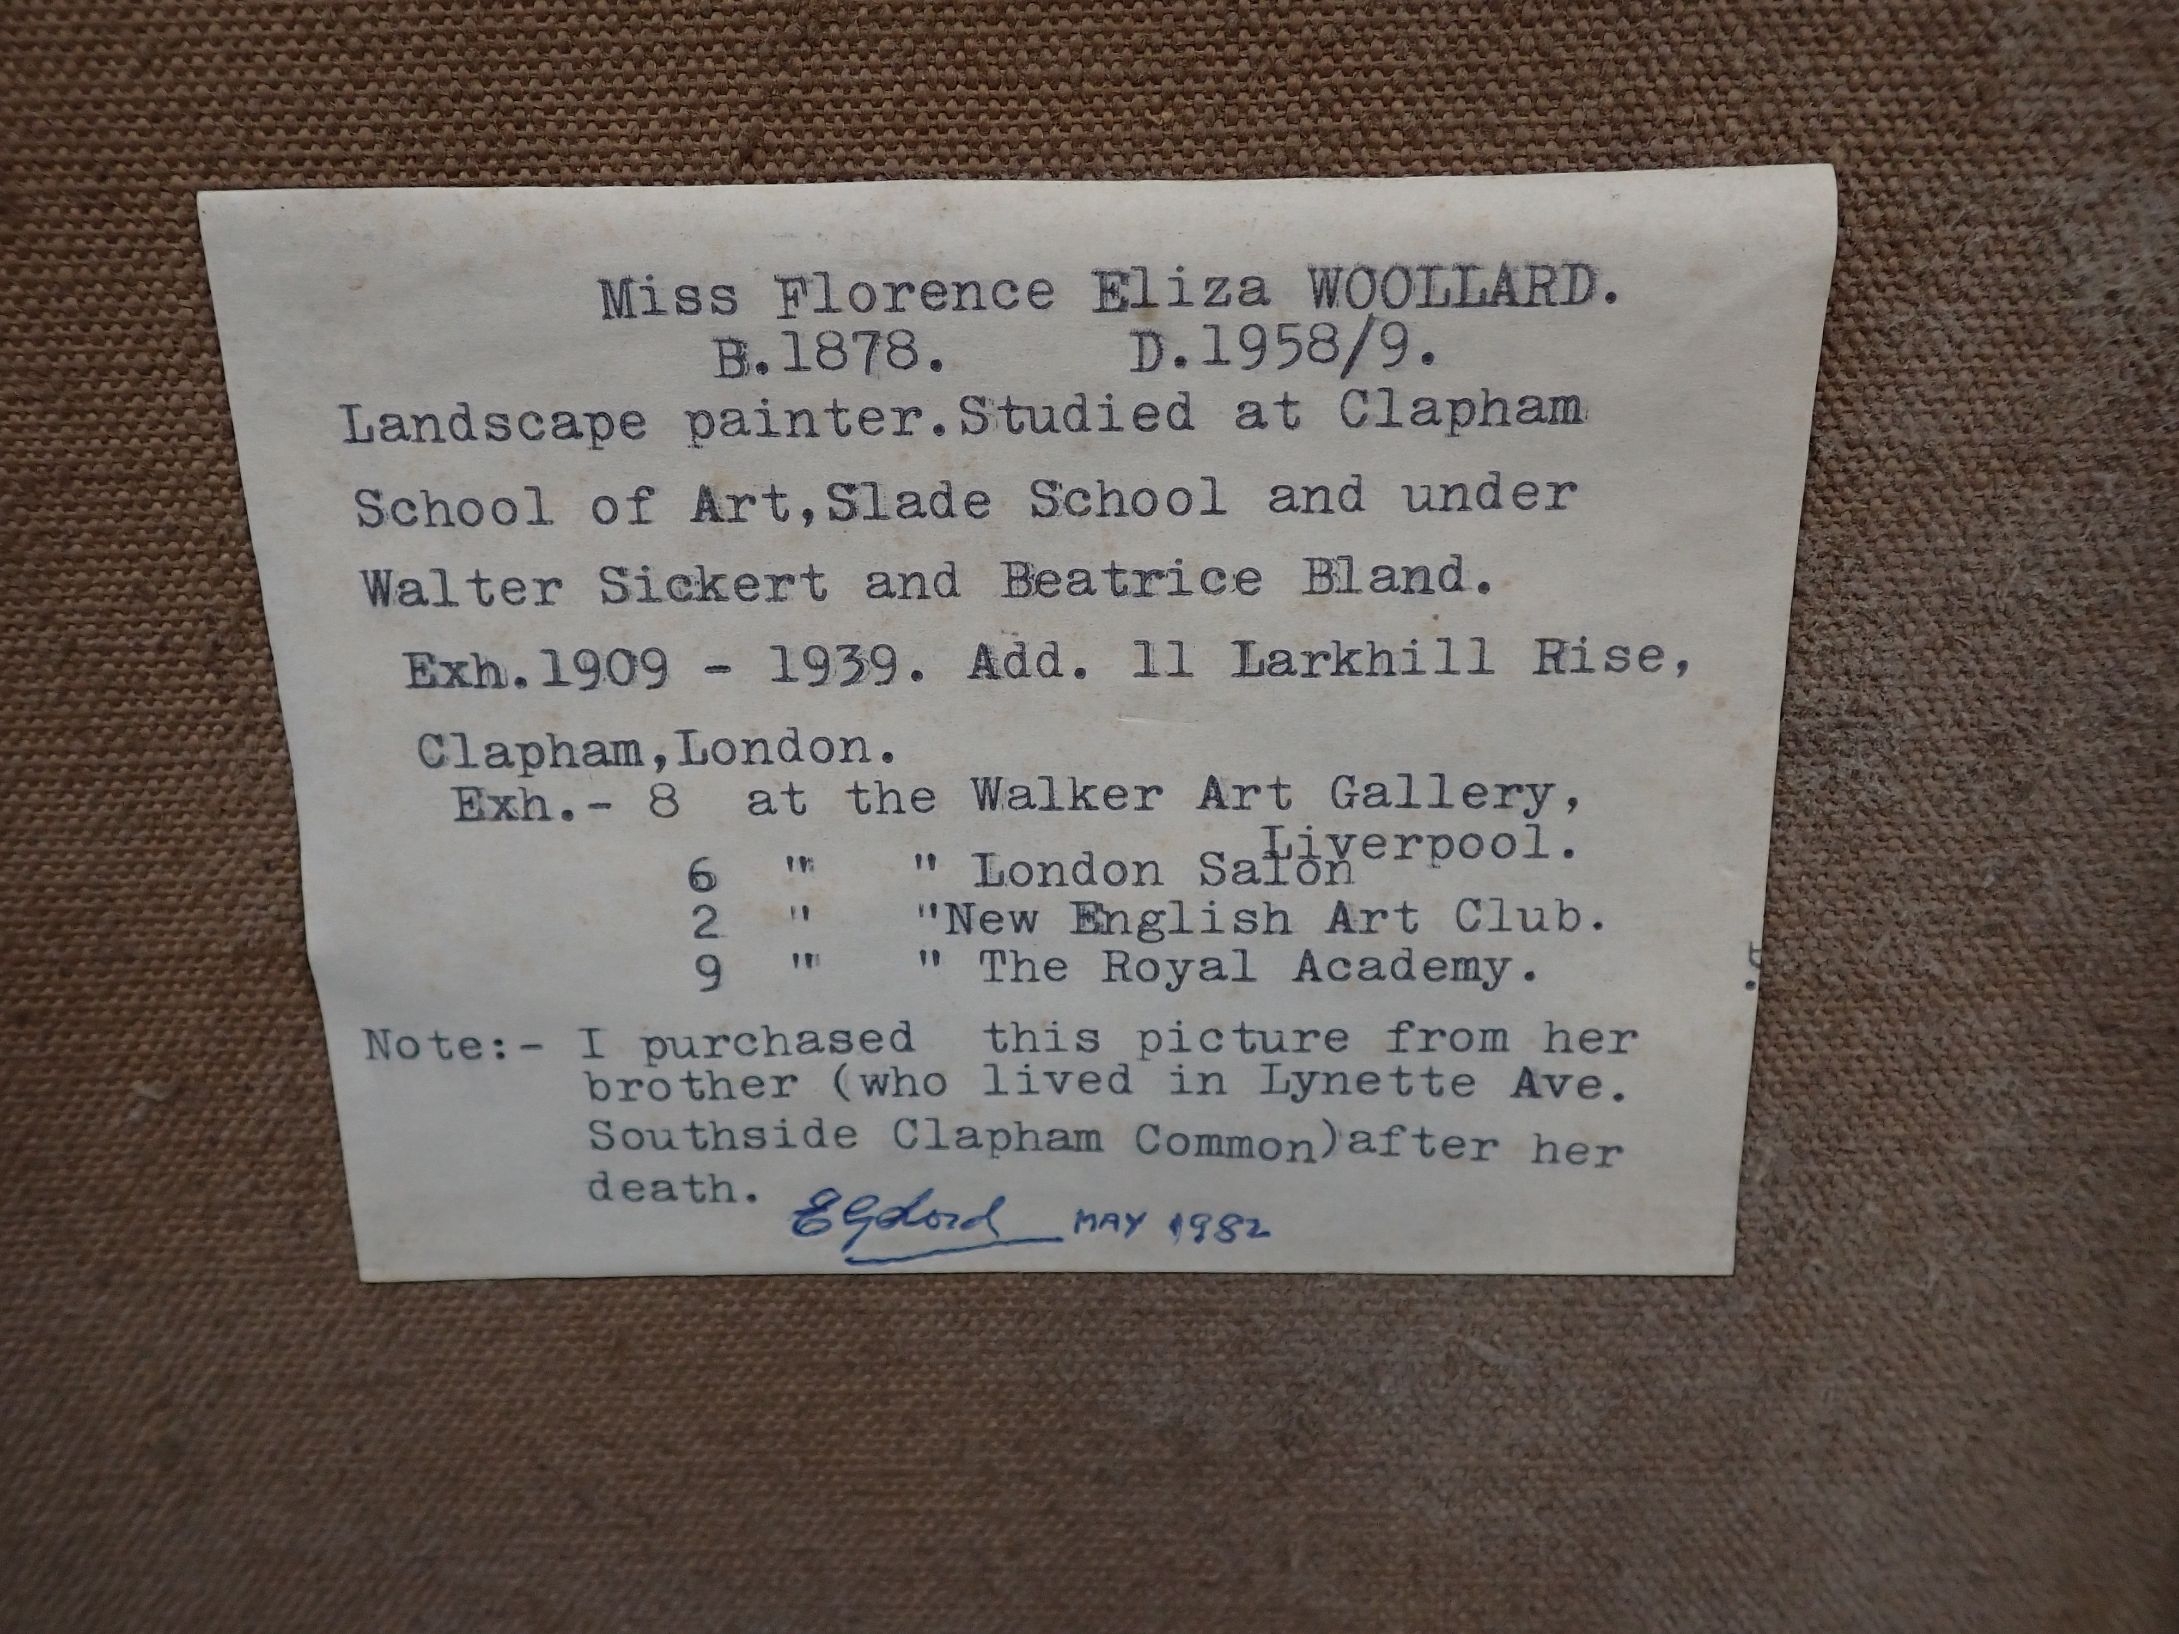 Miss Florence Eliza WOOLLARD.
B.1878. D.1958/9.
Landscape painter.Studied at Clapham
School of Art,Slade School and under
Walter Sickert and Beatrice Bland.
Exh.1909 - 1939. Add. 11 Larkhill Rise,
Clapham,London.
Exh.- 8 at the Walker Art Gallery,
Liverpool.
6 " " London Salon
2 " "New English Art Club.
9 " " The Royal Academy.
Note:- I purchased this picture from her
brother (who lived in Lynette Ave.
Southside Clapham Common)after her
death.
MAY 1982